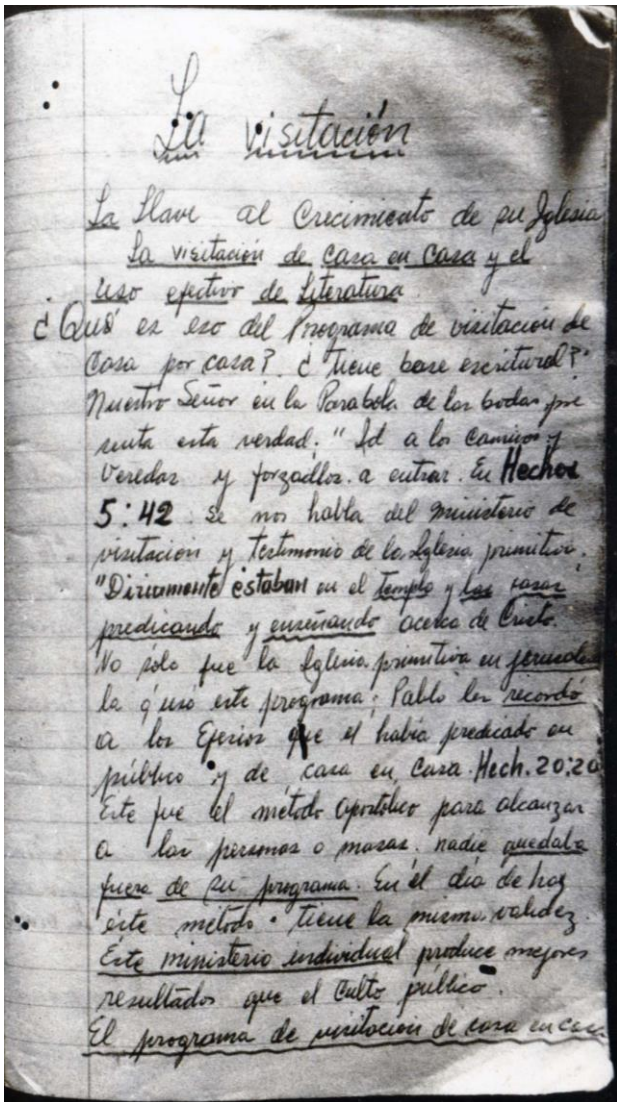 La visitación
La Llave al Crecimiento de su Iglesia
La visitación de casa en casa y el
uso efectivo de Literatura.
¿Qué es eso del Programa de visitación de
Casa por casa? ¿Tiene base escritural?
Nuestro Señor en la Parabola de las bodas pre
senta esta verdad: "Id a los caminos y
Veredas y forzadlos a entrar. En Hechos
5:42 se nos habla del ministerio de
visitación y testimonio de la Iglesia primitiva.
"Diriamente estaban en el templo y las casas
predicando y enseñando acerca de Cristo.
No solo fue la Iglesia primitiva en Jerusalen
la q' usó este programa; Pablo les recordó
a los Efesios que el había predicado en
público y de casa en casa. Hech. 20:20
Este fue el método apostólico para alcanzar
a las personas o masas. nadie quedaba
fuera de su programa. En el día de hoy
éste método tiene la misma validez.
Este ministerio individual produce mejores
resultados que el culto público.
El programa de visitación de casa en casa